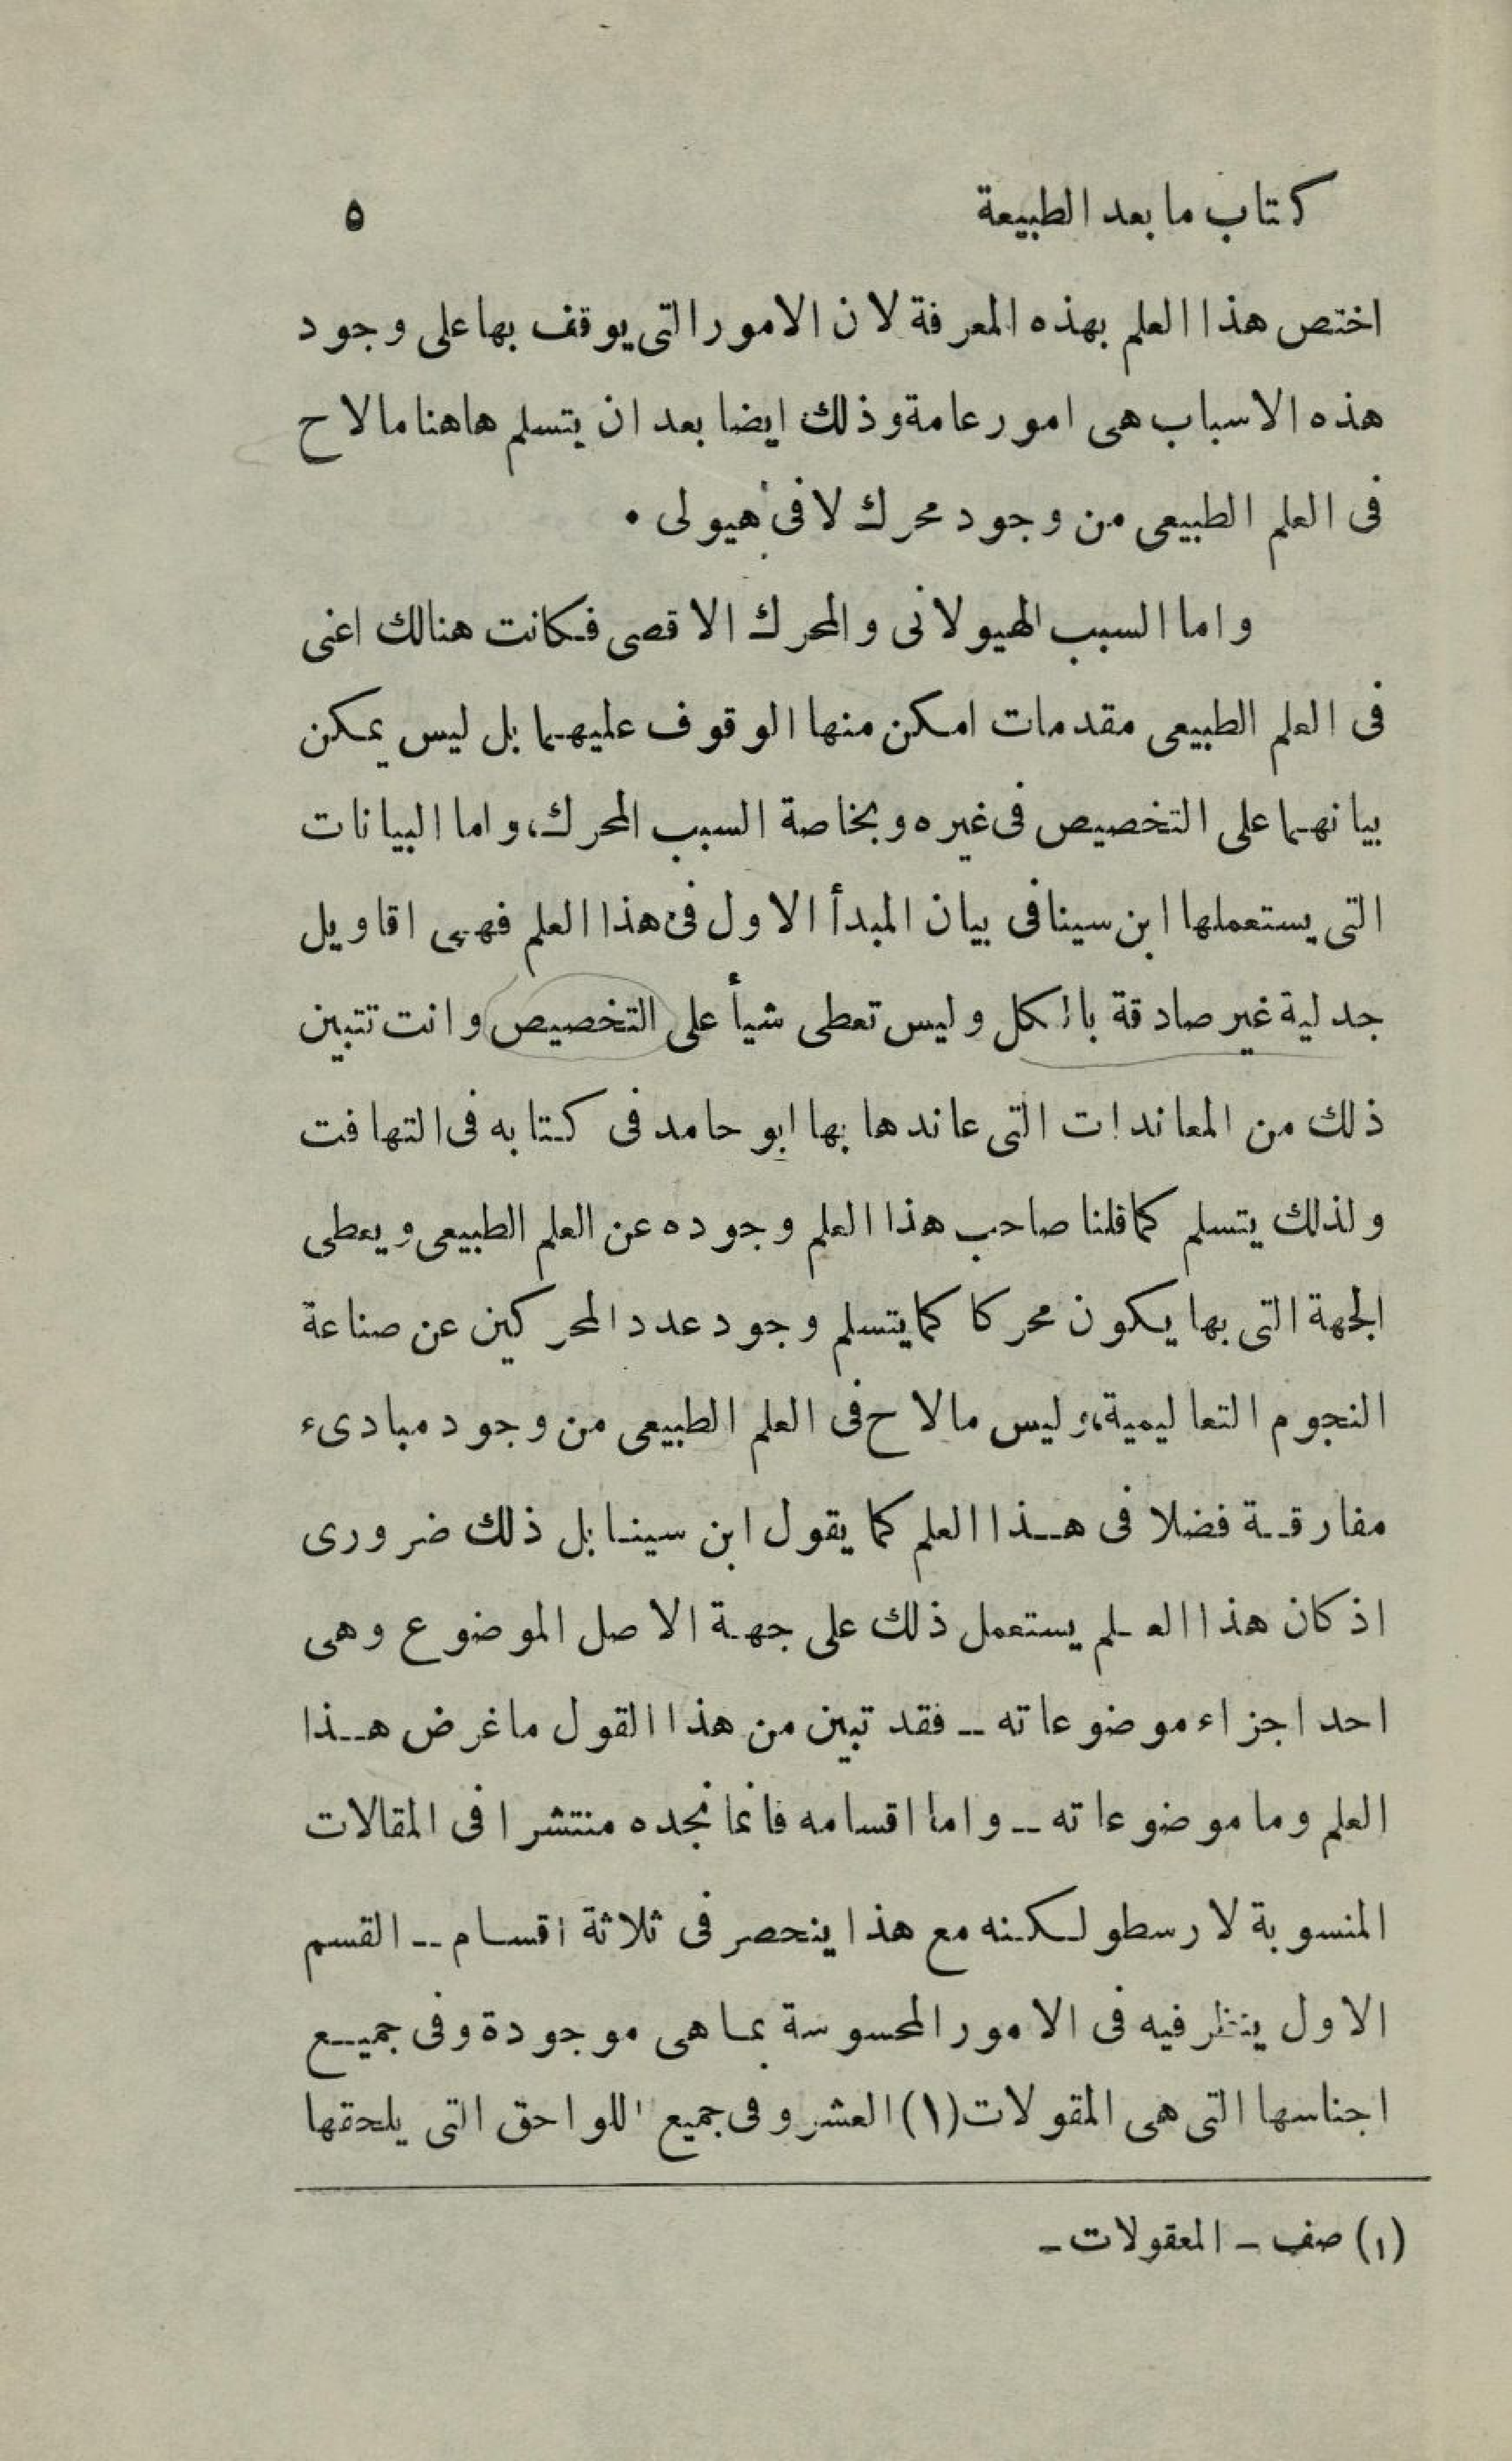 كتاب ما بعد الطبيعة ٥
اختص هذا العلم بهذه المعرفة لان الامور التى يوقف بها على وجود
هذه الاسباب هى امور عامة وذلك ايضا بعد ان يتسلم هاهنا ما لاح
فى العلم الطبيعى من وجود محرك لا فى هيولى ٠
واما السبب الهيولانى والمحرك الاقصى فكانت هنالك اعنى
فى العلم الطبيعى مقدمات امكن منها الوقوف عليهما بل ليس يمكن
بيانهما على التخصيص فى غيره وبخاصة السبب المحرك، واما البيانات
التى يستعملها ابن سينا فى بيان المبدأ الاول فى هذا العلم فهى اقاويل
جدلية غير صادقة بالكل وليس تعطى شيأ على التخصيص وانت تتبين
ذلك من المعاندات التى عاندها بها ابو حامد فى كتابه فى التهافت
ولذلك يتسلم كما قلنا صاحب هذا العلم وجوده عن العلم الطبيعى ويعطى
الجهة التى بها يكون محركا كما يتسلم وجود عدد المحركين عن صناعة
النجوم التعاليمية، وليس ما لاح فى العلم الطبيعى من وجود مبادىء
مفارقة فضلا فى هذا العلم كما يقول ابن سينا بل ذلك ضرورى
اذ كان هذا العلم يستعمل ذلك على جهة الاصل الموضوع وهى
احد اجزاء موضوعاته ــ فقد تبين من هذا القول ما غرض هذا
العلم وما موضوعاته ــ واما اقسامه فانما نجده منتشرا فى المقالات
المنسوبة لارسطو لكنه مع هذا ينحصر فى ثلاثة اقسام ــ القسم
الاول ينظر فيه فى الامور المحسوسة بما هى موجودة وفى جميع
اجناسها التى هى المقولات (١) العشر وفى جميع اللواحق التى يلحقها
(١) صف ــ المعقولات ــ